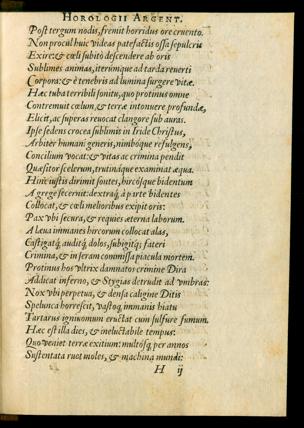 HOROLOGII ARGENT.
Post tergum nodis, fremit horridus ore cruento.
Non procul huic videas patefactis ossa sepulcris
Exire: & cœli subitò descendere ab oris
Sublimes animas, iterúmque ad tarda reuerti
Corpora: & è tenebris ad lumina surgere vitæ.
Hæc tuba terribili sonitu, quo protinus omne
Contremuit cœlum, & terræ intonuere profundæ,
Elicit, ac superas reuocat clangore sub auras.
Ipse sedens crocea sublimis in Iride Christus,
Arbiter humani generis, nimbóque refulgens,
Concilium vocat: & vitas ac crimina pendit
Quæsitor scelerum, trutináque examinat æqua.
Hinc iustis dirimit sontes, hircósque bidentum
A grege secernit: dextráq; à parte bidentes
Collocat, & cœli melioribus excipit oris:
Pax vbi secura, & requies æterna laborum.
A læua immanes hircorum collocat alas,
Castigátq; auditq; dolos, subigitq; fateri
Crimina, & in seram commissa piacula mortem.
Protinus hos vltrix damnatos crimine Dira
Addicat inferno, & Stygias detrudit ad vmbras:
Nox vbi perpetua, & densa caligine Ditis
Spelunca horrescit, vastoq; immanis hiatu
Tartarus igniuomum eructat cum sulfure fumum.
Hæc est illa dies, & ineluctabile tempus:
Quo veniet terræ exitium: multósq; per annos
Sustentata ruet moles, & machina mundi:
H ij